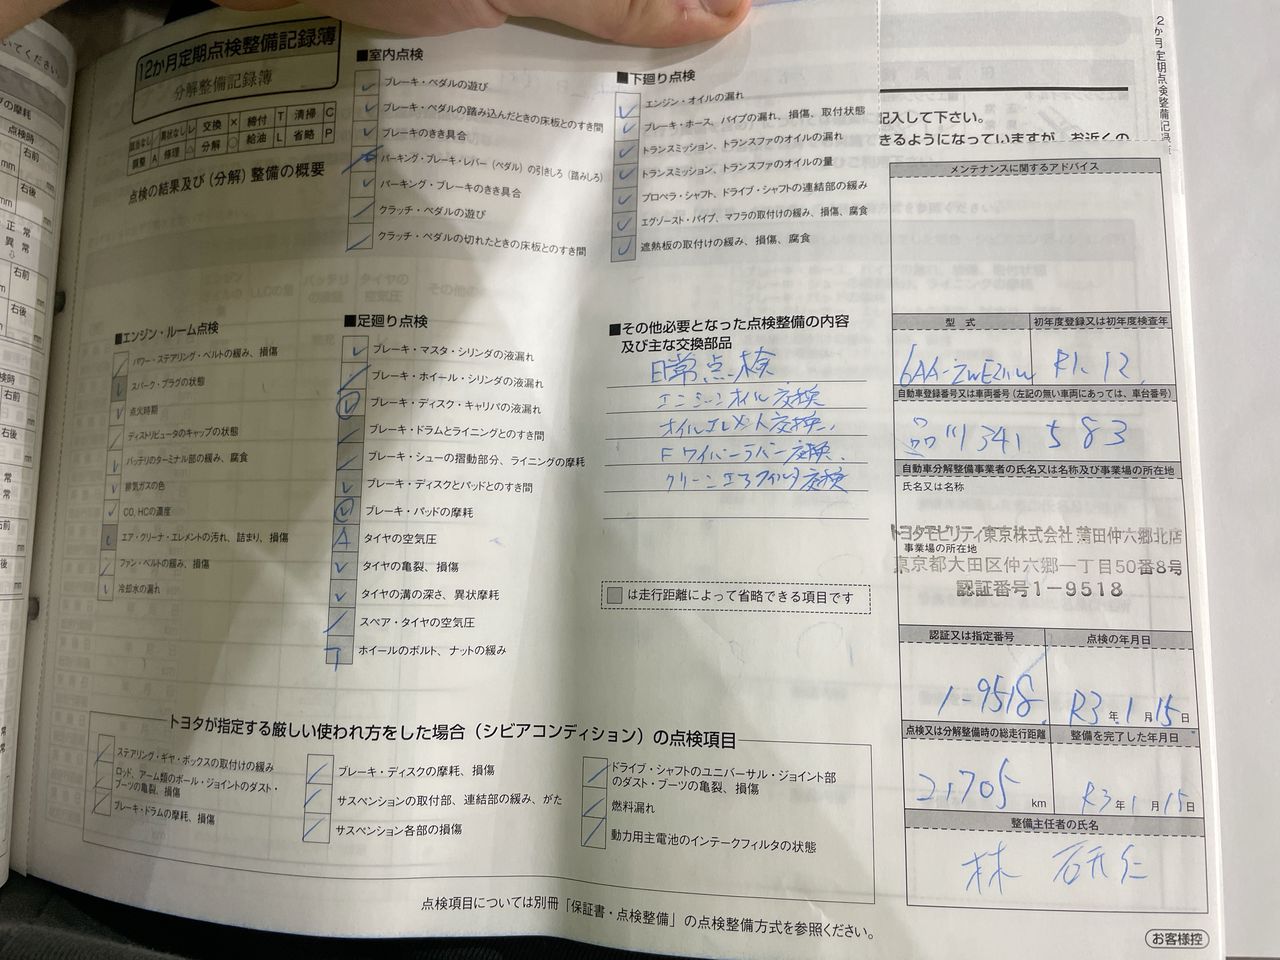 12か月定期点検整備記録簿
分解整備記録簿
点検の結果及び(分解)整備の概要
該当なし / 異状なし レ 交換 × 締付 T 清掃 C
調整 A 修理 △ 分解 ○ 給油 L 省略 P
■室内点検
ブレーキ・ペダルの遊び
ブレーキ・ペダルの踏み込んだときの床板とのすき間
ブレーキのきき具合
パーキング・ブレーキ・レバー(ペダル)の引きしろ(踏みしろ)
パーキング・ブレーキのきき具合
クラッチ・ペダルの遊び
クラッチ・ペダルの切れたときの床板とのすき間
■下廻り点検
エンジン・オイルの漏れ
ブレーキ・ホース、パイプの漏れ、損傷、取付状態
トランスミッション、トランスファのオイルの漏れ
トランスミッション、トランスファのオイルの量
プロペラ・シャフト、ドライブ・シャフトの連結部の緩み
エグゾースト・パイプ、マフラの取付けの緩み、損傷、腐食
遮熱板の取付けの緩み、損傷、腐食
■エンジン・ルーム点検
パワー・ステアリング・ベルトの緩み、損傷
スパーク・プラグの状態
点火時期
ディストリビュータのキャップの状態
バッテリのターミナル部の緩み、腐食
排気ガスの色
CO, HCの濃度
エア・クリーナ・エレメントの汚れ、詰まり、損傷
ファン・ベルトの緩み、損傷
冷却水の漏れ
■足廻り点検
ブレーキ・マスタ・シリンダの液漏れ
ブレーキ・ホイール・シリンダの液漏れ
ブレーキ・ディスク・キャリパの液漏れ
ブレーキ・ドラムとライニングとのすき間
ブレーキ・シューの摺動部分、ライニングの摩耗
ブレーキ・ディスクとパッドとのすき間
ブレーキ・パッドの摩耗
タイヤの空気圧
タイヤの亀裂、損傷
タイヤの溝の深さ、異状摩耗
スペア・タイヤの空気圧
ホイールのボルト、ナットの緩み
■その他必要となった点検整備の内容
及び主な交換部品
日常点検
エンジンオイル交換
オイルエレメント交換
Fワイパーラバー交換
クリーンエアフィルタ交換
は走行距離によって省略できる項目です
トヨタが指定する厳しい使われ方をした場合(シビアコンディション)の点検項目
ステアリング・ギヤ・ボックスの取付けの緩み
ロッド、アーム類のボール・ジョイントのダスト・
ブーツの亀裂、損傷
ブレーキ・ドラムの摩耗、損傷
ブレーキ・ディスクの摩耗、損傷
サスペンションの取付部、連結部の緩み、がた
サスペンション各部の損傷
ドライブ・シャフトのユニバーサル・ジョイント部
のダスト・ブーツの亀裂、損傷
燃料漏れ
動力用主電池のインテークフィルタの状態
点検項目については別冊「保証書・点検整備」の点検整備方式を参照ください。
記入して下さい。
きるようになっていますが、お近くの
メンテナンスに関するアドバイス
型式 初年度登録又は初年度検査年
R1. 12
自動車登録番号又は車両番号(左記の無い車両にあっては、車台番号)
品川 341 583
自動車分解整備事業者の氏名又は名称及び事業場の所在地
氏名又は名称
トヨタモビリティ東京株式会社 蒲田仲六郷北店
事業場の所在地
東京都大田区仲六郷一丁目50番8号
認証番号1-9518
認証又は指定番号 点検の年月日
1-9518 R3年1月15日
点検又は分解整備時の総走行距離 整備を完了した年月日
21705 km R3年1月15日
整備主任者の氏名
お客様控